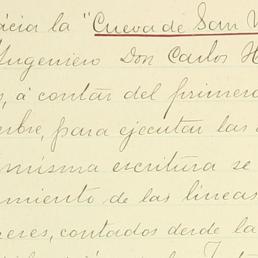 ácia la "Cueva de San
Ingeniero Don Carlos
s, á contar del primero
bre, para ejecutar las
misma escritura se
miento de las líneas
eres, contados desde la